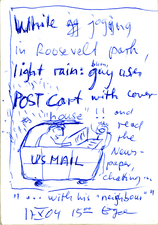 While jogging
in Roosevelt park,
light rain: guy uses
POST cart with cover
"house" !! and
read
the
News-
paper,
US MAIL
"... with his "neighbour"